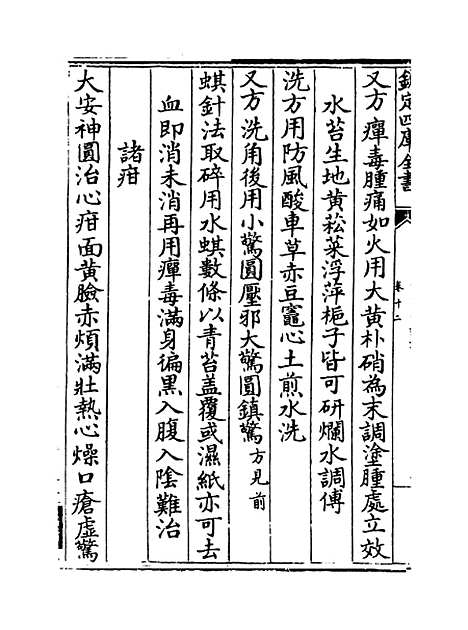 欽定四庫全書
卷十二
又方㾮毒腫痛如火用大黄朴硝為末調塗腫處立效
水苔生地黄菘菜浮萍梔子皆可研爛水調傅
洗方用防風酸車草赤豆竈心土煎水洗
又方洗角後用小驚圓壓邪大驚圓鎮驚方見前
蜞針法取碎用水蜞數條以青苔盖覆或濕紙亦可去
血即消未消再用㾮毒滿身徧黒入腹入陰難治
諸疳
大安神圓治心疳面黄臉赤煩滿壯熱心燥口瘡虚驚